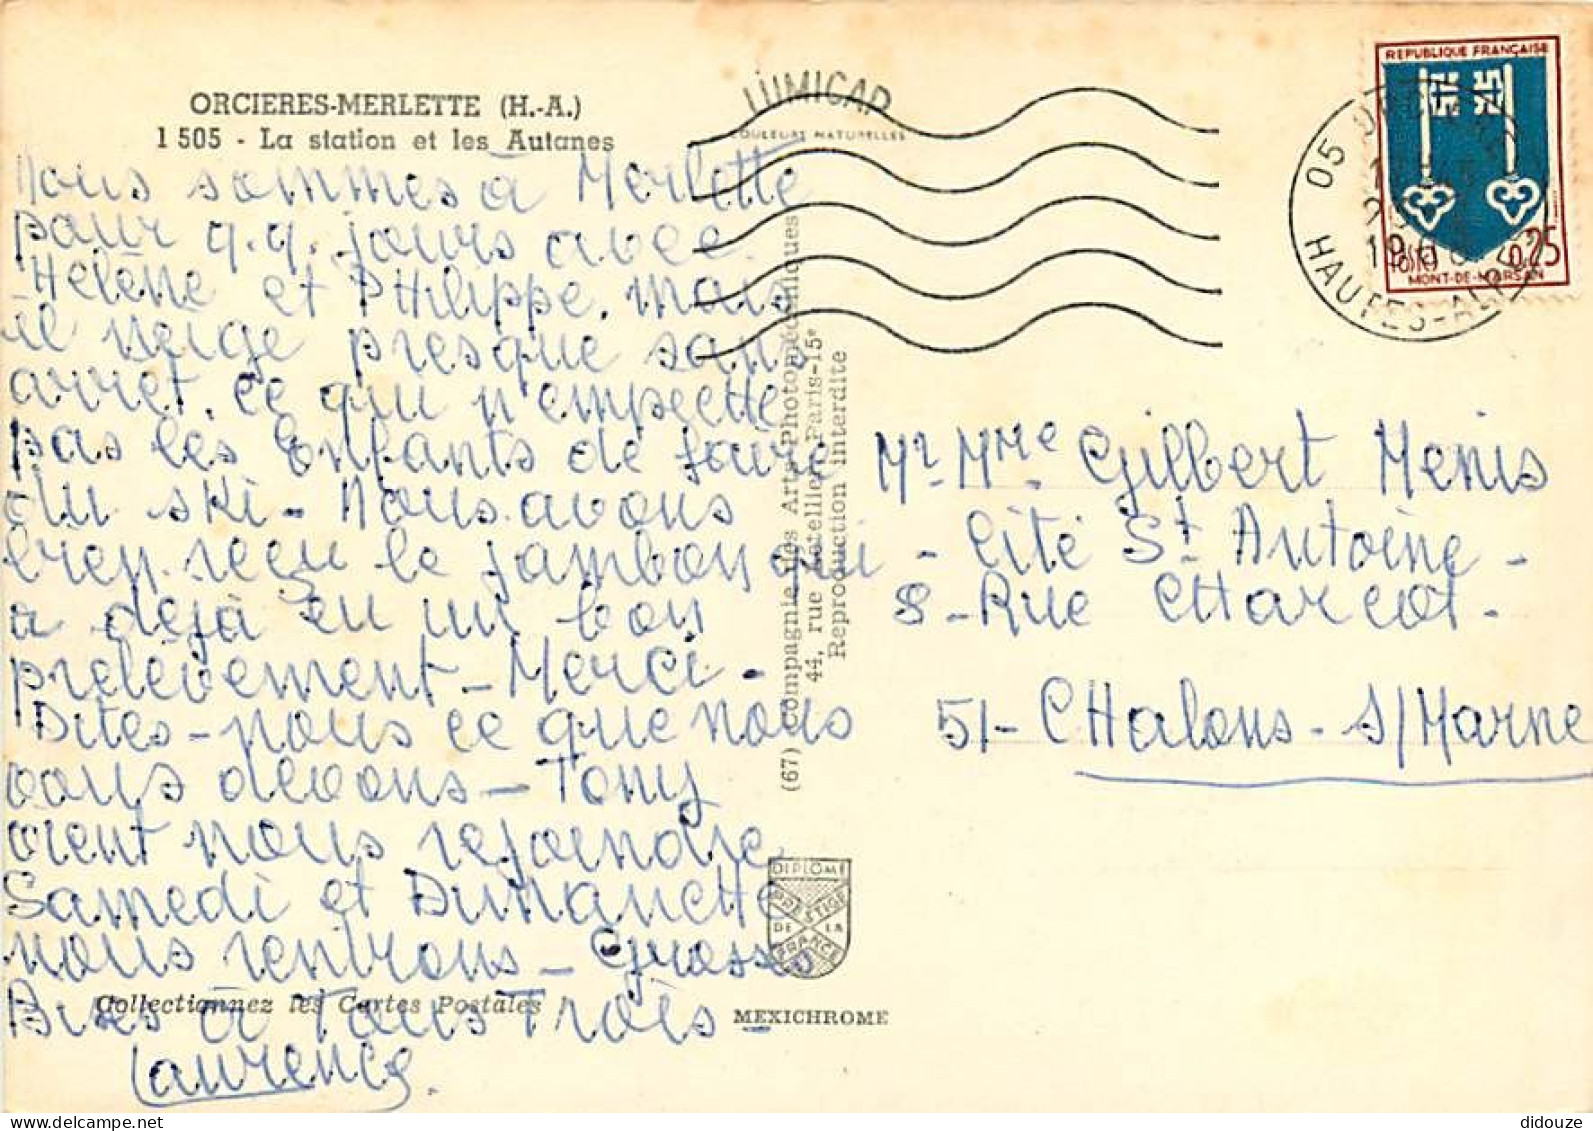 ORCIERES-MERLETTE (H.-A.)
1 505 - La station et les Autanes
Nous sommes à Merlette
pour q.q. jours avec
Hélène et PHilippe, mais
il neige presque sans
arret, ce qui n'empecHe
pas les Enfants de faire
du ski - Nous avons
bien reçu le jambon qui
a déjà eu un bon
prélèvement - Merci -
Dites-nous ce que nous
vous devons - Tony
vient nous rejoindre
Samedi et DimancHe
nous rentrons - Grosses
Bises à Tous Trois -
Laurence.
Collectionnez les Cartes Postales
LUMICAP
COULEURS NATURELLES
(67) Compagnie des Arts Photomécaniques
44, rue Letellier, Paris-15e
Reproduction interdite
DIPLOME
PRESTIGE
DE LA
FRANCE
MEXICHROME
REPUBLIQUE FRANÇAISE
0,25
MONT-DE-MARSAN
05
HAUTES-ALPES
Mr Mme Gilbert Menis
- Cité St Antoine -
8 - Rue CHarcot -
51 - CHalons - s/Marne
didouze